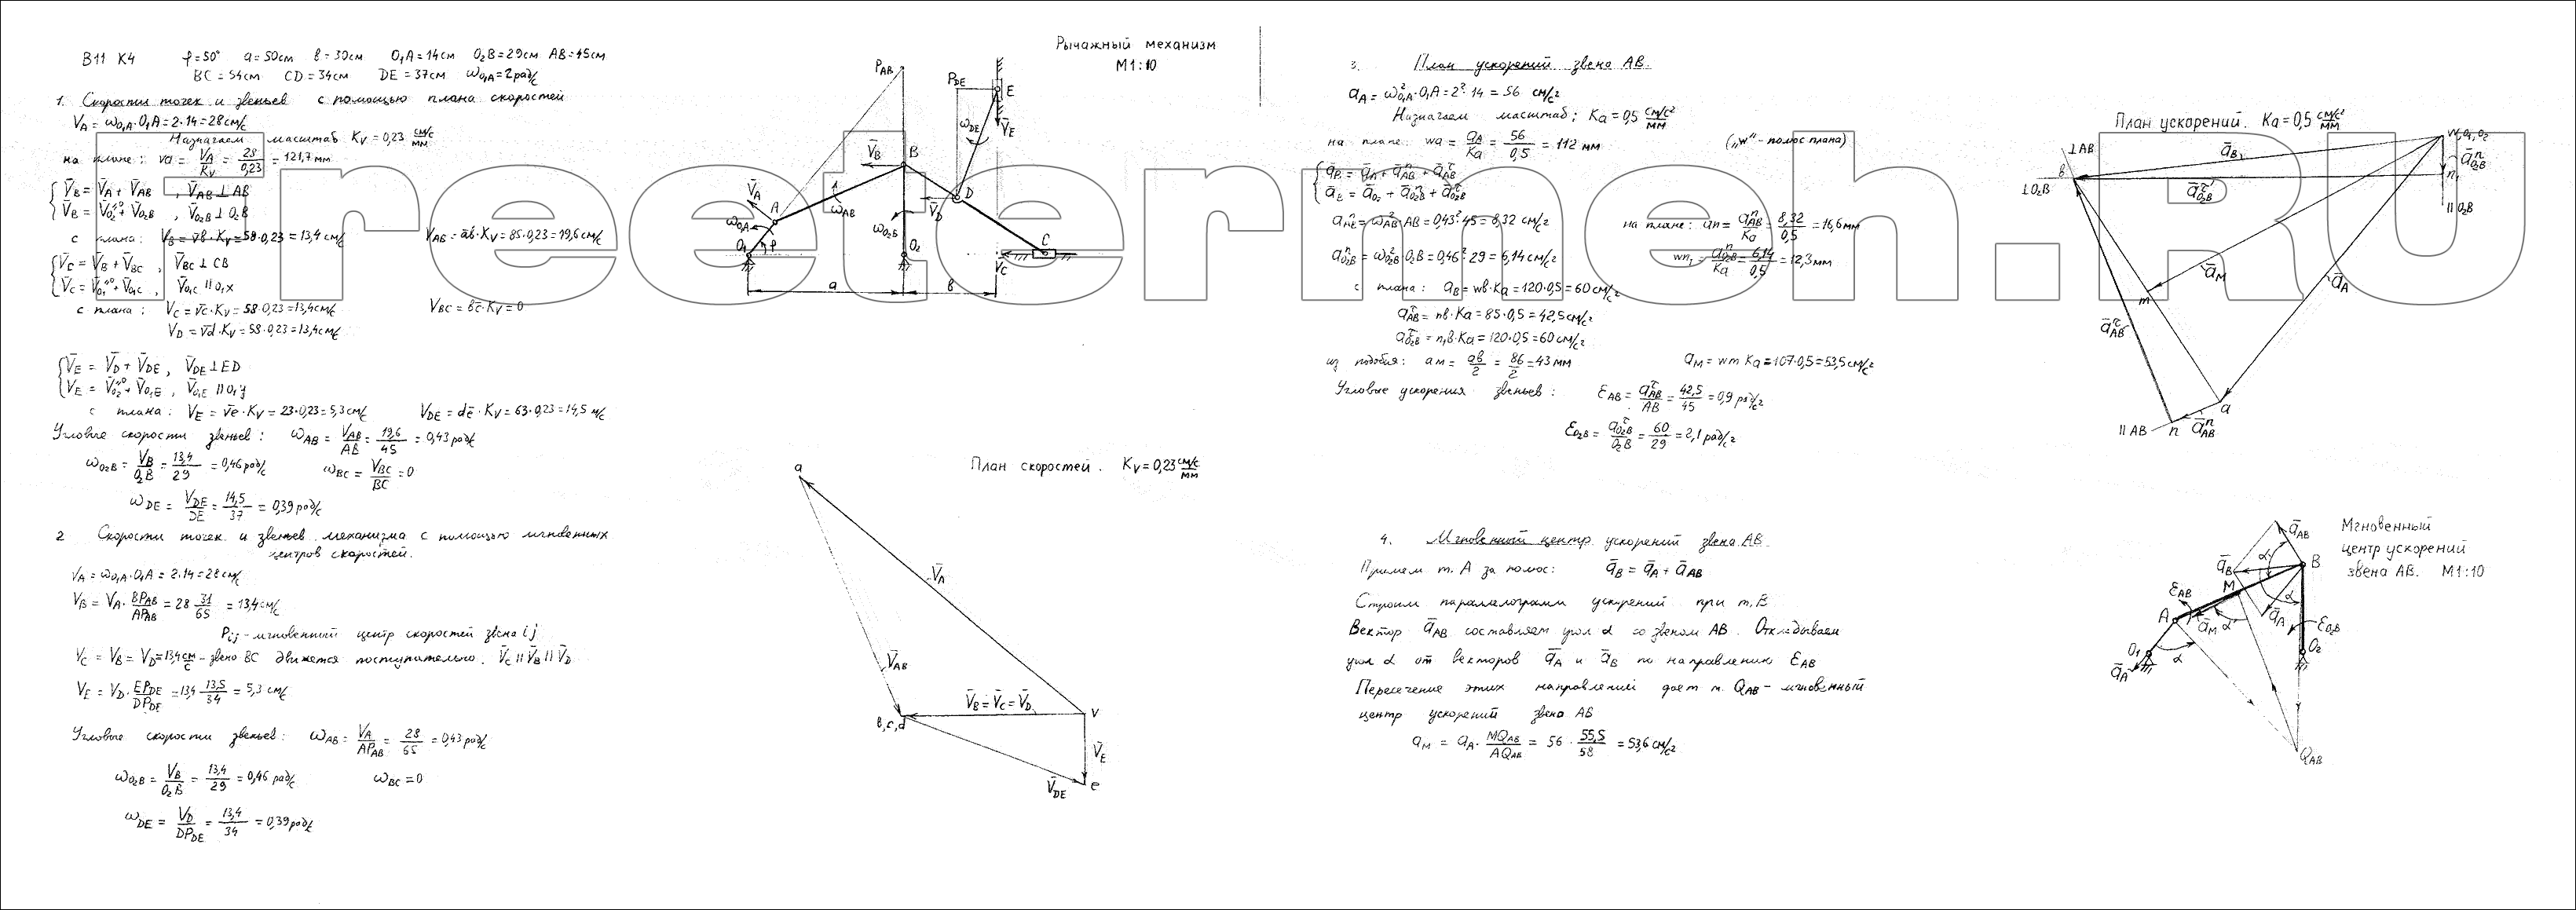 B11 K4 φ=50° a=50см в=30см O₁A=14см O₂B=29см AB=45см
BC=54см CD=34см DE=37см ω_O₁A=2рад/с
1. Скорости точек и звеньев с помощью плана скоростей
V_A = ω_O₁A·O₁A = 2·14 = 28 см/с
Назначаем масштаб K_V = 0,23 см/с/мм
на плане: va = V_A/K_V = 28/0,23 = 121,7 мм
V̄_B = V̄_A + V̄_AB , V̄_AB ⊥ AB
V̄_B = V̄_O₂⁼⁰ + V̄_O₂B , V̄_O₂B ⊥ O₂B
с плана: V_B = v̄в·K_V = 58·0,23 = 13,4 см/с V_AB = āв·K_V = 85·0,23 = 19,6 см/с
V̄_C = V̄_B + V̄_BC , V̄_BC ⊥ CB
V̄_C = V̄_O₁⁼⁰ + V̄_O₁C , V̄_O₁C ∥ O₁x
с плана: V_C = v̄c·K_V = 58·0,23 = 13,4 см/с V_BC = в̄c·K_V = 0
V_D = v̄d·K_V = 58·0,23 = 13,4 см/с
V̄_E = V̄_D + V̄_DE , V̄_DE ⊥ ED
V̄_E = V̄_O₂⁼⁰ + V̄_O₁E , V̄_O₁E ∥ O₁y
с плана: V_E = v̄e·K_V = 23·0,23 = 5,3 см/с V_DE = dē·K_V = 63·0,23 = 14,5 м/с
Угловые скорости звеньев: ω_AB = V_AB/AB = 19,6/45 = 0,43 рад/с
ω_O₂B = V_B/O₂B = 13,4/29 = 0,46 рад/с ω_BC = V_BC/BC = 0
ω_DE = V_DE/DE = 14,5/37 = 0,39 рад/с
2 Скорости точек и звеньев механизма с помощью мгновенных
центров скоростей.
V_A = ω_O₁A·O₁A = 2·14 = 28 см/с
V_B = V_A·BP_AB/AP_AB = 28 31/65 = 13,4 см/с
P_ij - мгновенный центр скоростей звена ij
V_C = V_B = V_D = 13,4 см/с - звено BC движется поступательно. V̄_C ∥ V̄_B ∥ V̄_D
V_E = V_D·EP_DE/DP_DE = 13,4 13,5/34 = 5,3 см/с
Угловые скорости звеньев: ω_AB = V_A/AP_AB = 28/65 = 0,43 рад/с
ω_O₂B = V_B/O₂B = 13,4/29 = 0,46 рад/с ω_BC = 0
ω_DE = V_D/DP_DE = 13,4/34 = 0,39 рад/с
Рычажный механизм
М1:10
P_AB
P_DE
E
ω_DE
V̄_E
V̄_B
B
V̄_A
A
ω_AB
D
V̄_D
ω_O₁A
ω_O₂B
O₁
φ
O₂
C
V_C
a
в
План скоростей. K_V = 0,23 см/с/мм
a
V̄_A
V̄_AB
в,c,d
V̄_B = V̄_C = V̄_D
v
V̄_E
V̄_DE
e
3. План ускорений звена AB.
a_A = ω²_O₁A·O₁A = 2²·14 = 56 см/с²
Назначаем масштаб: Ka = 0,5 см/с²/мм
на плане: wa = a_A/Ka = 56/0,5 = 112 мм („w" - полюс плана)
ā_B = ā_A + āⁿ_AB + ā^τ_AB
ā_B = ā_O₂ + āⁿ_O₂B + ā^τ_O₂B
aⁿ_AB = ω²_AB·AB = 0,43²·45 = 8,32 см/с² на плане: an = aⁿ_AB/Ka = 8,32/0,5 = 16,6 мм
aⁿ_O₂B = ω²_O₂B·O₂B = 0,46²·29 = 6,14 см/с² wn₁ = aⁿ_O₂B/Ka = 6,14/0,5 = 12,3 мм
с плана: a_B = wв·Ka = 120·0,5 = 60 см/с²
a^τ_AB = nв·Ka = 85·0,5 = 42,5 см/с²
a^τ_O₂B = n₁в·Ka = 120·0,5 = 60 см/с²
из подобия: am = aв/2 = 86/2 = 43 мм a_M = wm Ka = 107·0,5 = 53,5 см/с²
Угловые ускорения звеньев: ε_AB = a^τ_AB/AB = 42,5/45 = 0,9 рад/с²
ε_O₂B = a^τ_O₂B/O₂B = 60/29 = 2,1 рад/с²
4. Мгновенный центр ускорений звена AB
Примем т. A за полюс: ā_B = ā_A + ā_AB
Строим параллелограмм ускорений при т. B
Вектор ā_AB составляет угол α со звеном AB. Откладываем
угол α от векторов ā_A и ā_B по направлению ε_AB
Пересечение этих направлений дает т. Q_AB - мгновенный
центр ускорений звена AB
a_M = a_A·MQ_AB/AQ_AB = 56·55,5/58 = 53,6 см/с²
План ускорений. Ka = 0,5 см/с²/мм
w, o₁, o₂
⊥AB
ā_B
āⁿ_O₂B
в
n₁
⊥O₂B
ā^τ_O₂B
∥O₂B
ā_M
m
ā_A
ā^τ_AB
a
∥AB
n
āⁿ_AB
Мгновенный
центр ускорений
звена AB. М1:10
ā_AB
α
B
ā_B
M
ε_AB
A
ā_M
α
ā_A
α
ε_O₂B
O₁
ā_A
α
O₂
Q_AB
Freetermeh.RU